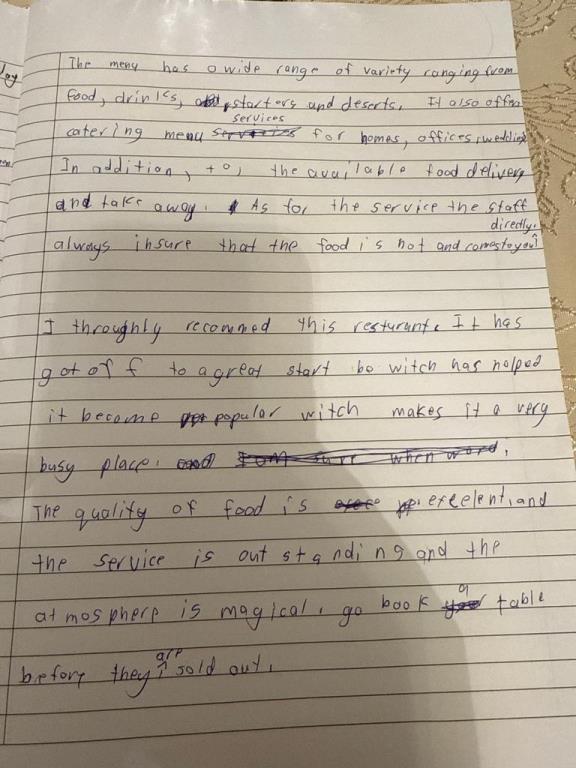 The meny has a wide range of variety ranging from
food, drinks, starters and deserts. It also offer
services
catering menu for homes, offices, wedding
In addition, to, the available food delivery
and take away. As for the service the staff
directly.
always insure that the food is hot and comes to you
I throughly recommed this resturunt. It has
got off to a great start bo witch has helped
it become popular witch makes it a very
busy place.
The quality of food is excelent, and
the service is outstanding and the
atmosphere is magical. go book a table
before they are sold out.